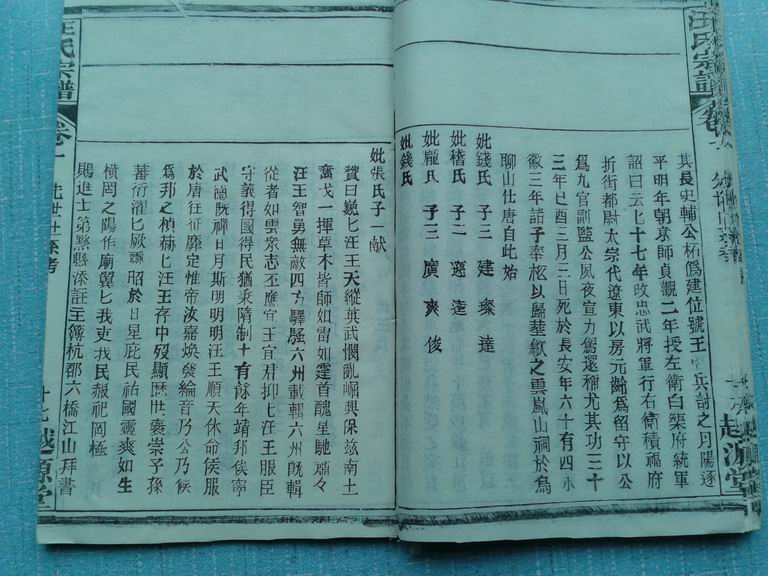 汪氏宗譜
其長史輔公柘僞建位號王
平明年朝京師貞觀二年授左衛白渠府統軍
詔曰云云十七年改忠武將軍行右衛積福府
折衝都尉太宗代遼東以房元齡爲留守以公
爲九宮副監公夙夜宣力駕還稱尤其功二十
三年己酉三月三日死於長安年六十有四永
徽三年諸子奉柩以歸葬歙之雲嵐山祠於烏
聊山仕唐自此始
妣錢氏 子三 建 璨 達
妣稽氏 子二 逵
妣龐氏 子三 廣 爽 俊
妣錢氏
妣張氏子一献
贊曰巍巍汪王天縱英武憫亂崛興保兹南土
奮戈一揮草木皆師如雷如霆首醜星馳肅々
汪王智勇無敵四方驛騷六州載輯六州旣輯
從者如雲衆志丕應宜王宜君抑々汪王服臣
守義得國得民猶乘隋制十有餘年靖邦俟寧
武德旣禪日月斯明明明汪王順天休命侯服
於唐往征靡定惟帝汝嘉煥發綸音乃公乃侯
爲邦之楨赫々汪王存中歿顯歷世褒崇子孫
蕃衍濯々厥靈昭於日星庇民祐國靈爽如生
橫岡之陽作廟翼々我吏我民報祀罔極
賜進士第黟縣添註主簿杭郡六橋江山拜書
汪氏宗譜
卷一
先世世系考
十七
越源堂